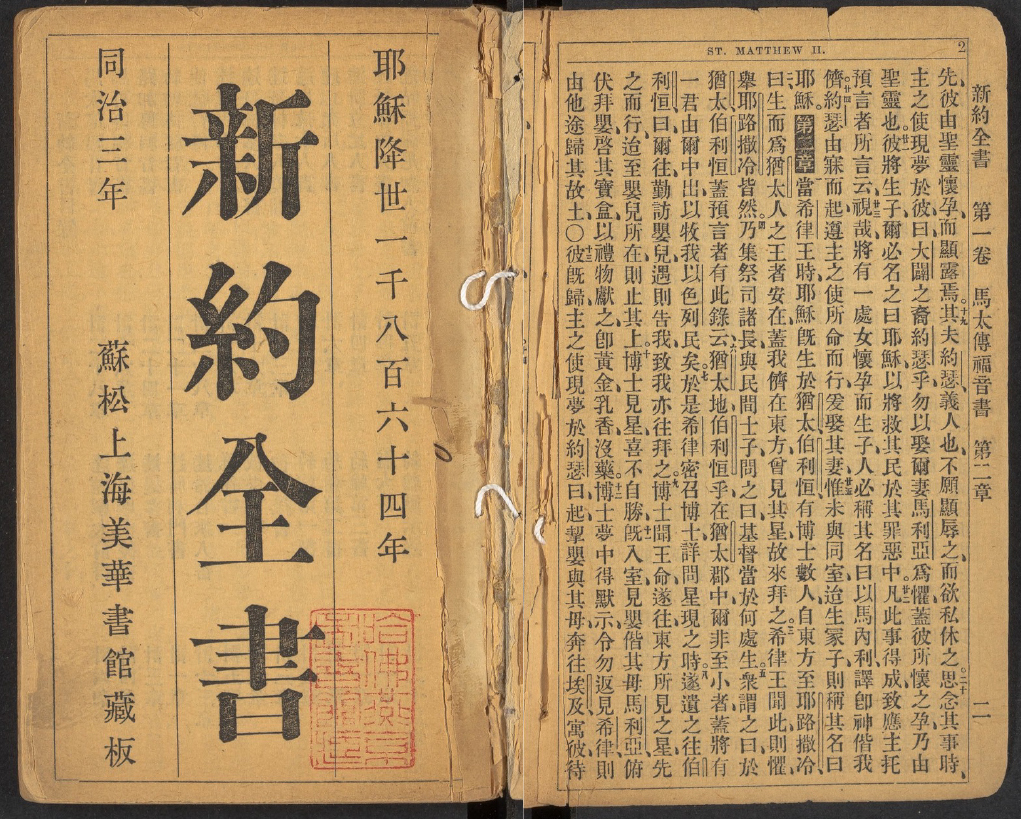 耶穌降世一千八百六十四年
新約全書
同治三年 蘇松上海美華書館藏板
ST. MATTHEW II. 2
新約全書 第一卷 馬太傳福音書 第二章 二
先彼由聖靈懷孕而顯露焉。十九其夫約瑟義人也、不願顯辱之而欲私休之。二十思念其事時、
主之使現夢於彼曰、大闢之裔約瑟乎、勿以娶爾妻馬利亞爲懼、蓋彼所懷之孕乃由
聖靈也。廿一彼將生子、爾必名之曰耶穌、以將救其民於其罪惡中。廿二凡此事得成、致應主托
預言者所言云、廿三視哉、將有一處女懷孕而生子、人必稱其名曰以馬內利、譯卽神偕我
儕。廿四約瑟由寐而起、遵主之使所命而行、爰娶其妻、廿五惟未與同室、迨生冢子、則稱其名曰
耶穌。第二章一當希律王時、耶穌旣生於猶太伯利恒、有博士數人、自東方至耶路撒冷、
二曰、生而爲猶太人之王者安在、蓋我儕在東方曾見其星、故來拜之。三希律王聞此則懼、
舉耶路撒冷皆然。四乃集祭司諸長與民間士子問之曰、基督當於何處生。五衆謂之曰、於
猶太伯利恒、蓋預言者有此錄云、六猶太地伯利恒乎、在猶太郡中、爾非至小者、蓋將有
一君由爾中出、以牧我以色列民矣。七於是希律密召博士、詳問星現之時。八遂遣之往伯
利恒曰、爾往勤訪嬰兒、遇則告我、致我亦往拜之。九博士聞王命遂往、東方所見之星先
之而行、迨至嬰兒所在則止其上。十博士見星喜不自勝、十一旣入室、見嬰偕其母馬利亞、俯
伏拜嬰、啓其寶盒、以禮物獻之、卽黃金乳香沒藥。十二博士夢中得默示、令勿返見希律、則
由他途歸其故土、〇十三彼旣歸、主之使現夢於約瑟曰、起、挈嬰與其母奔往埃及、寓彼待